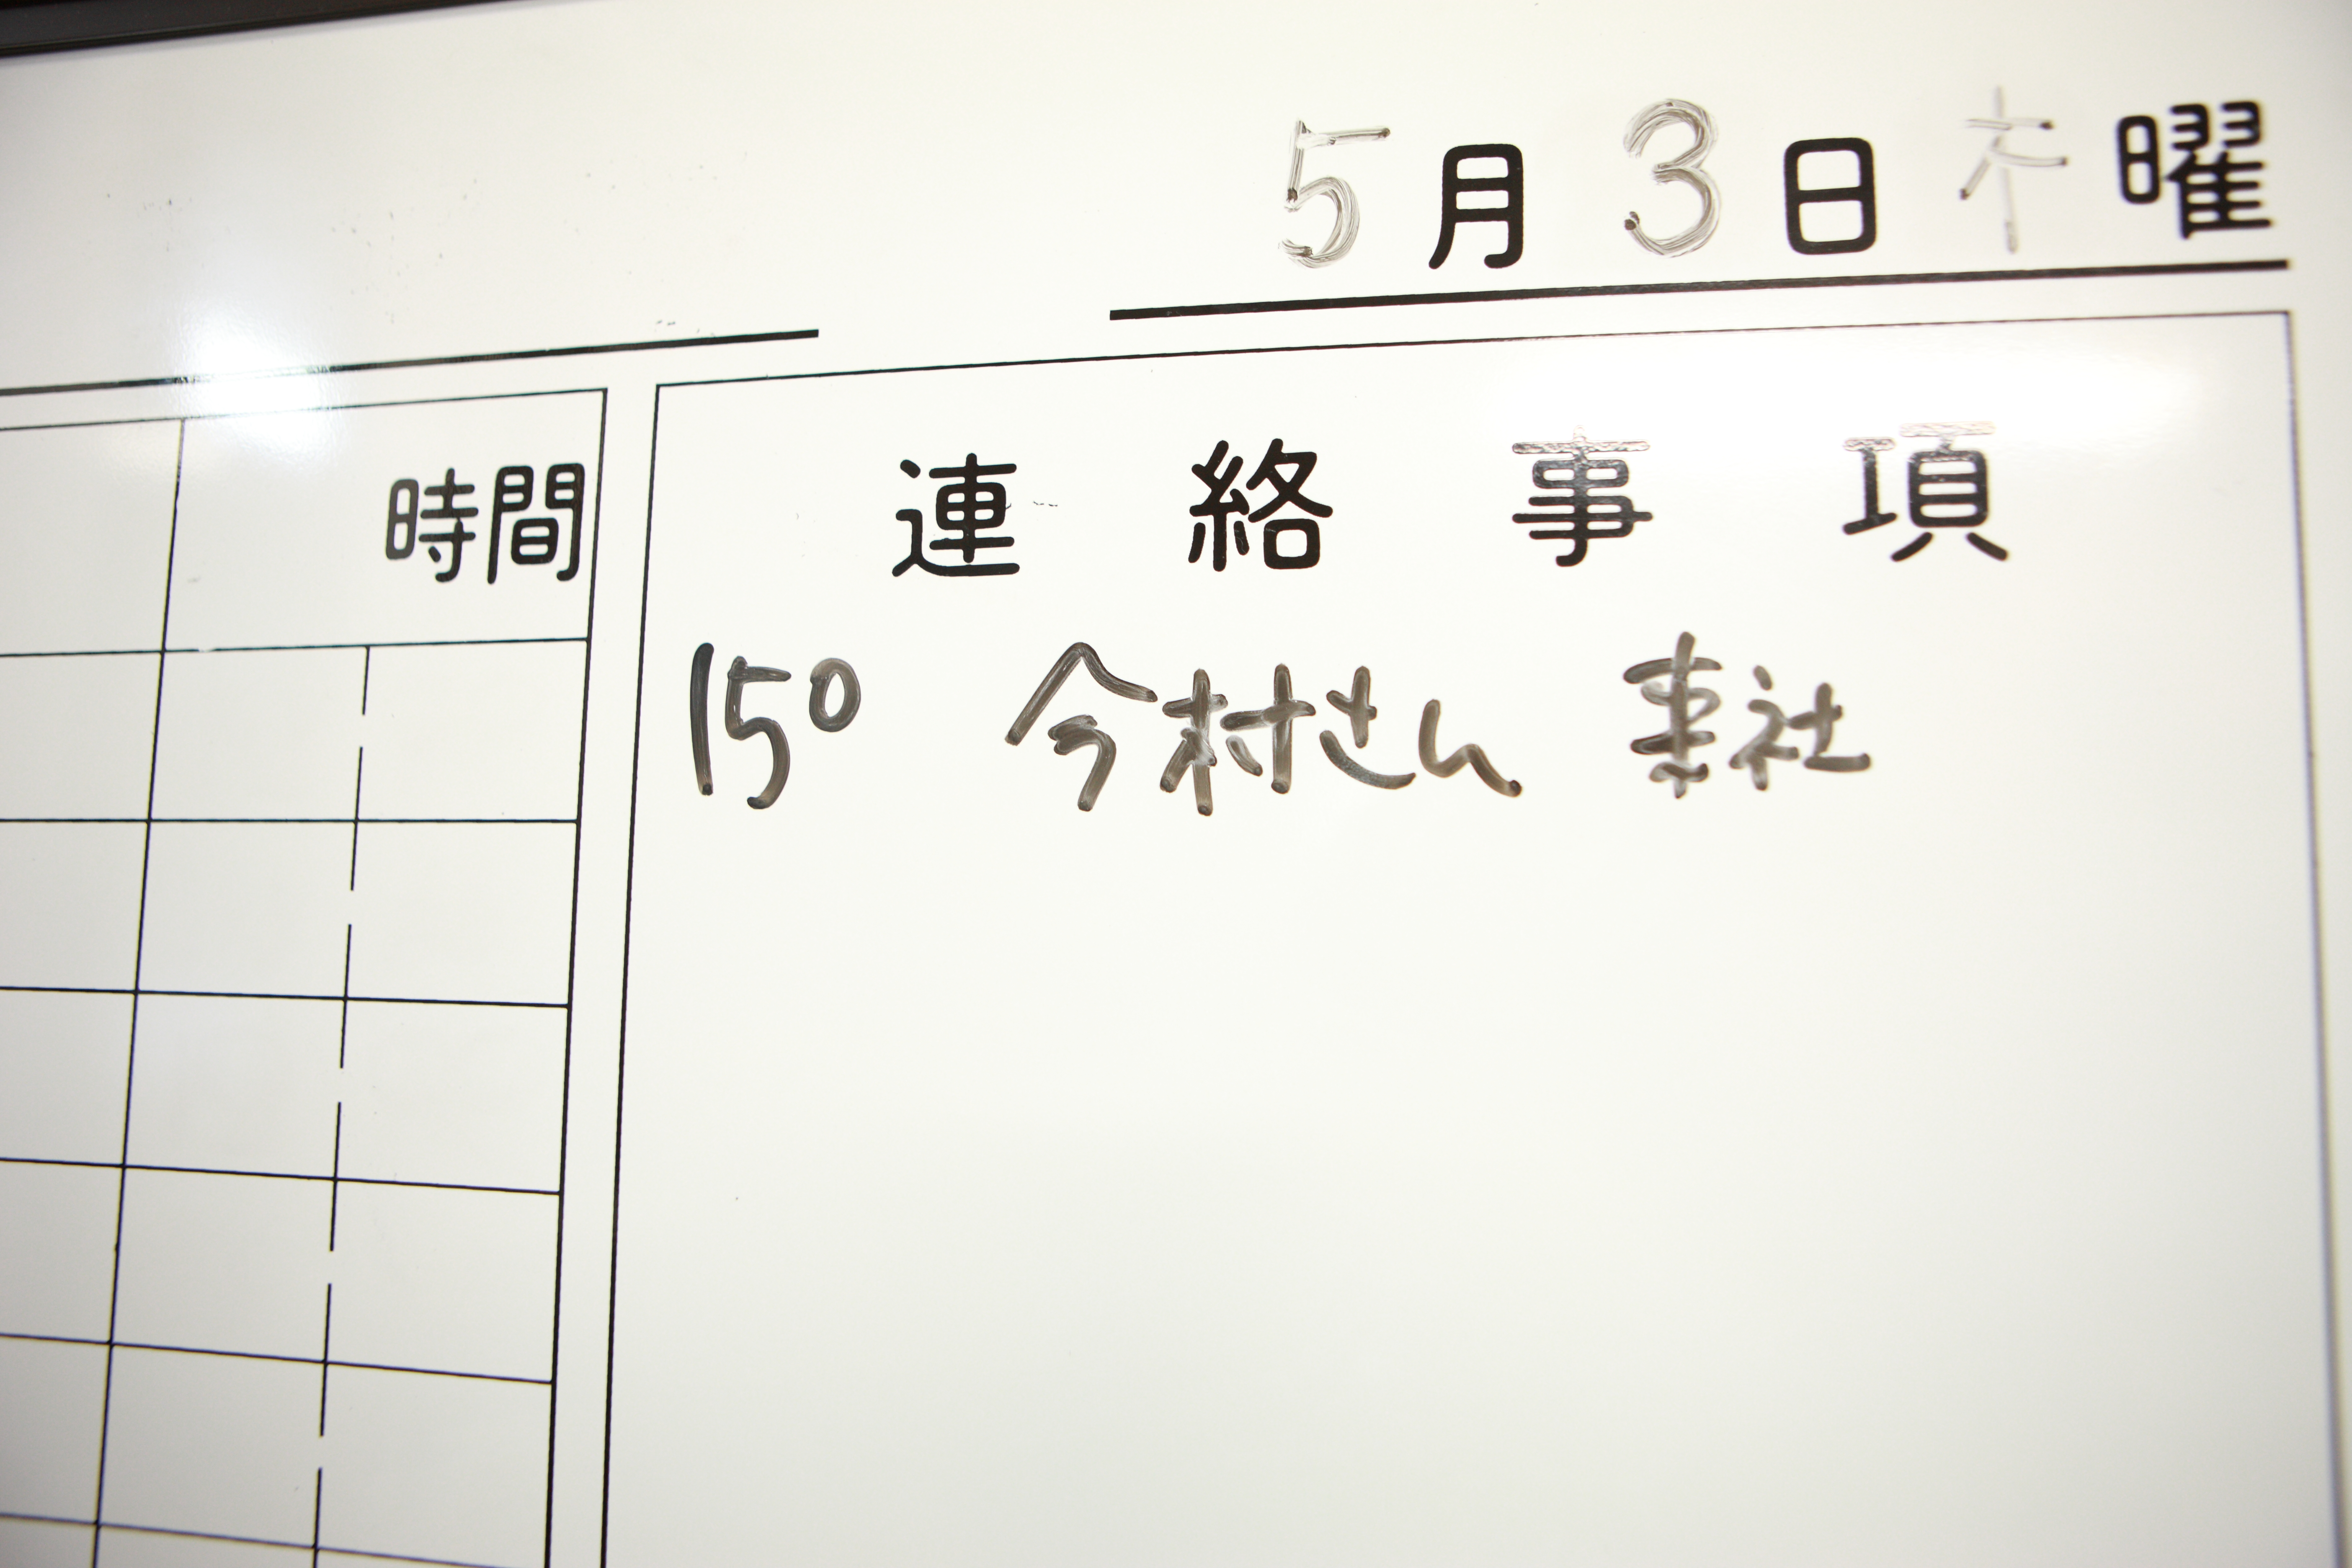 5月3日木曜
時間
連絡事項
15⁰ 今村さん